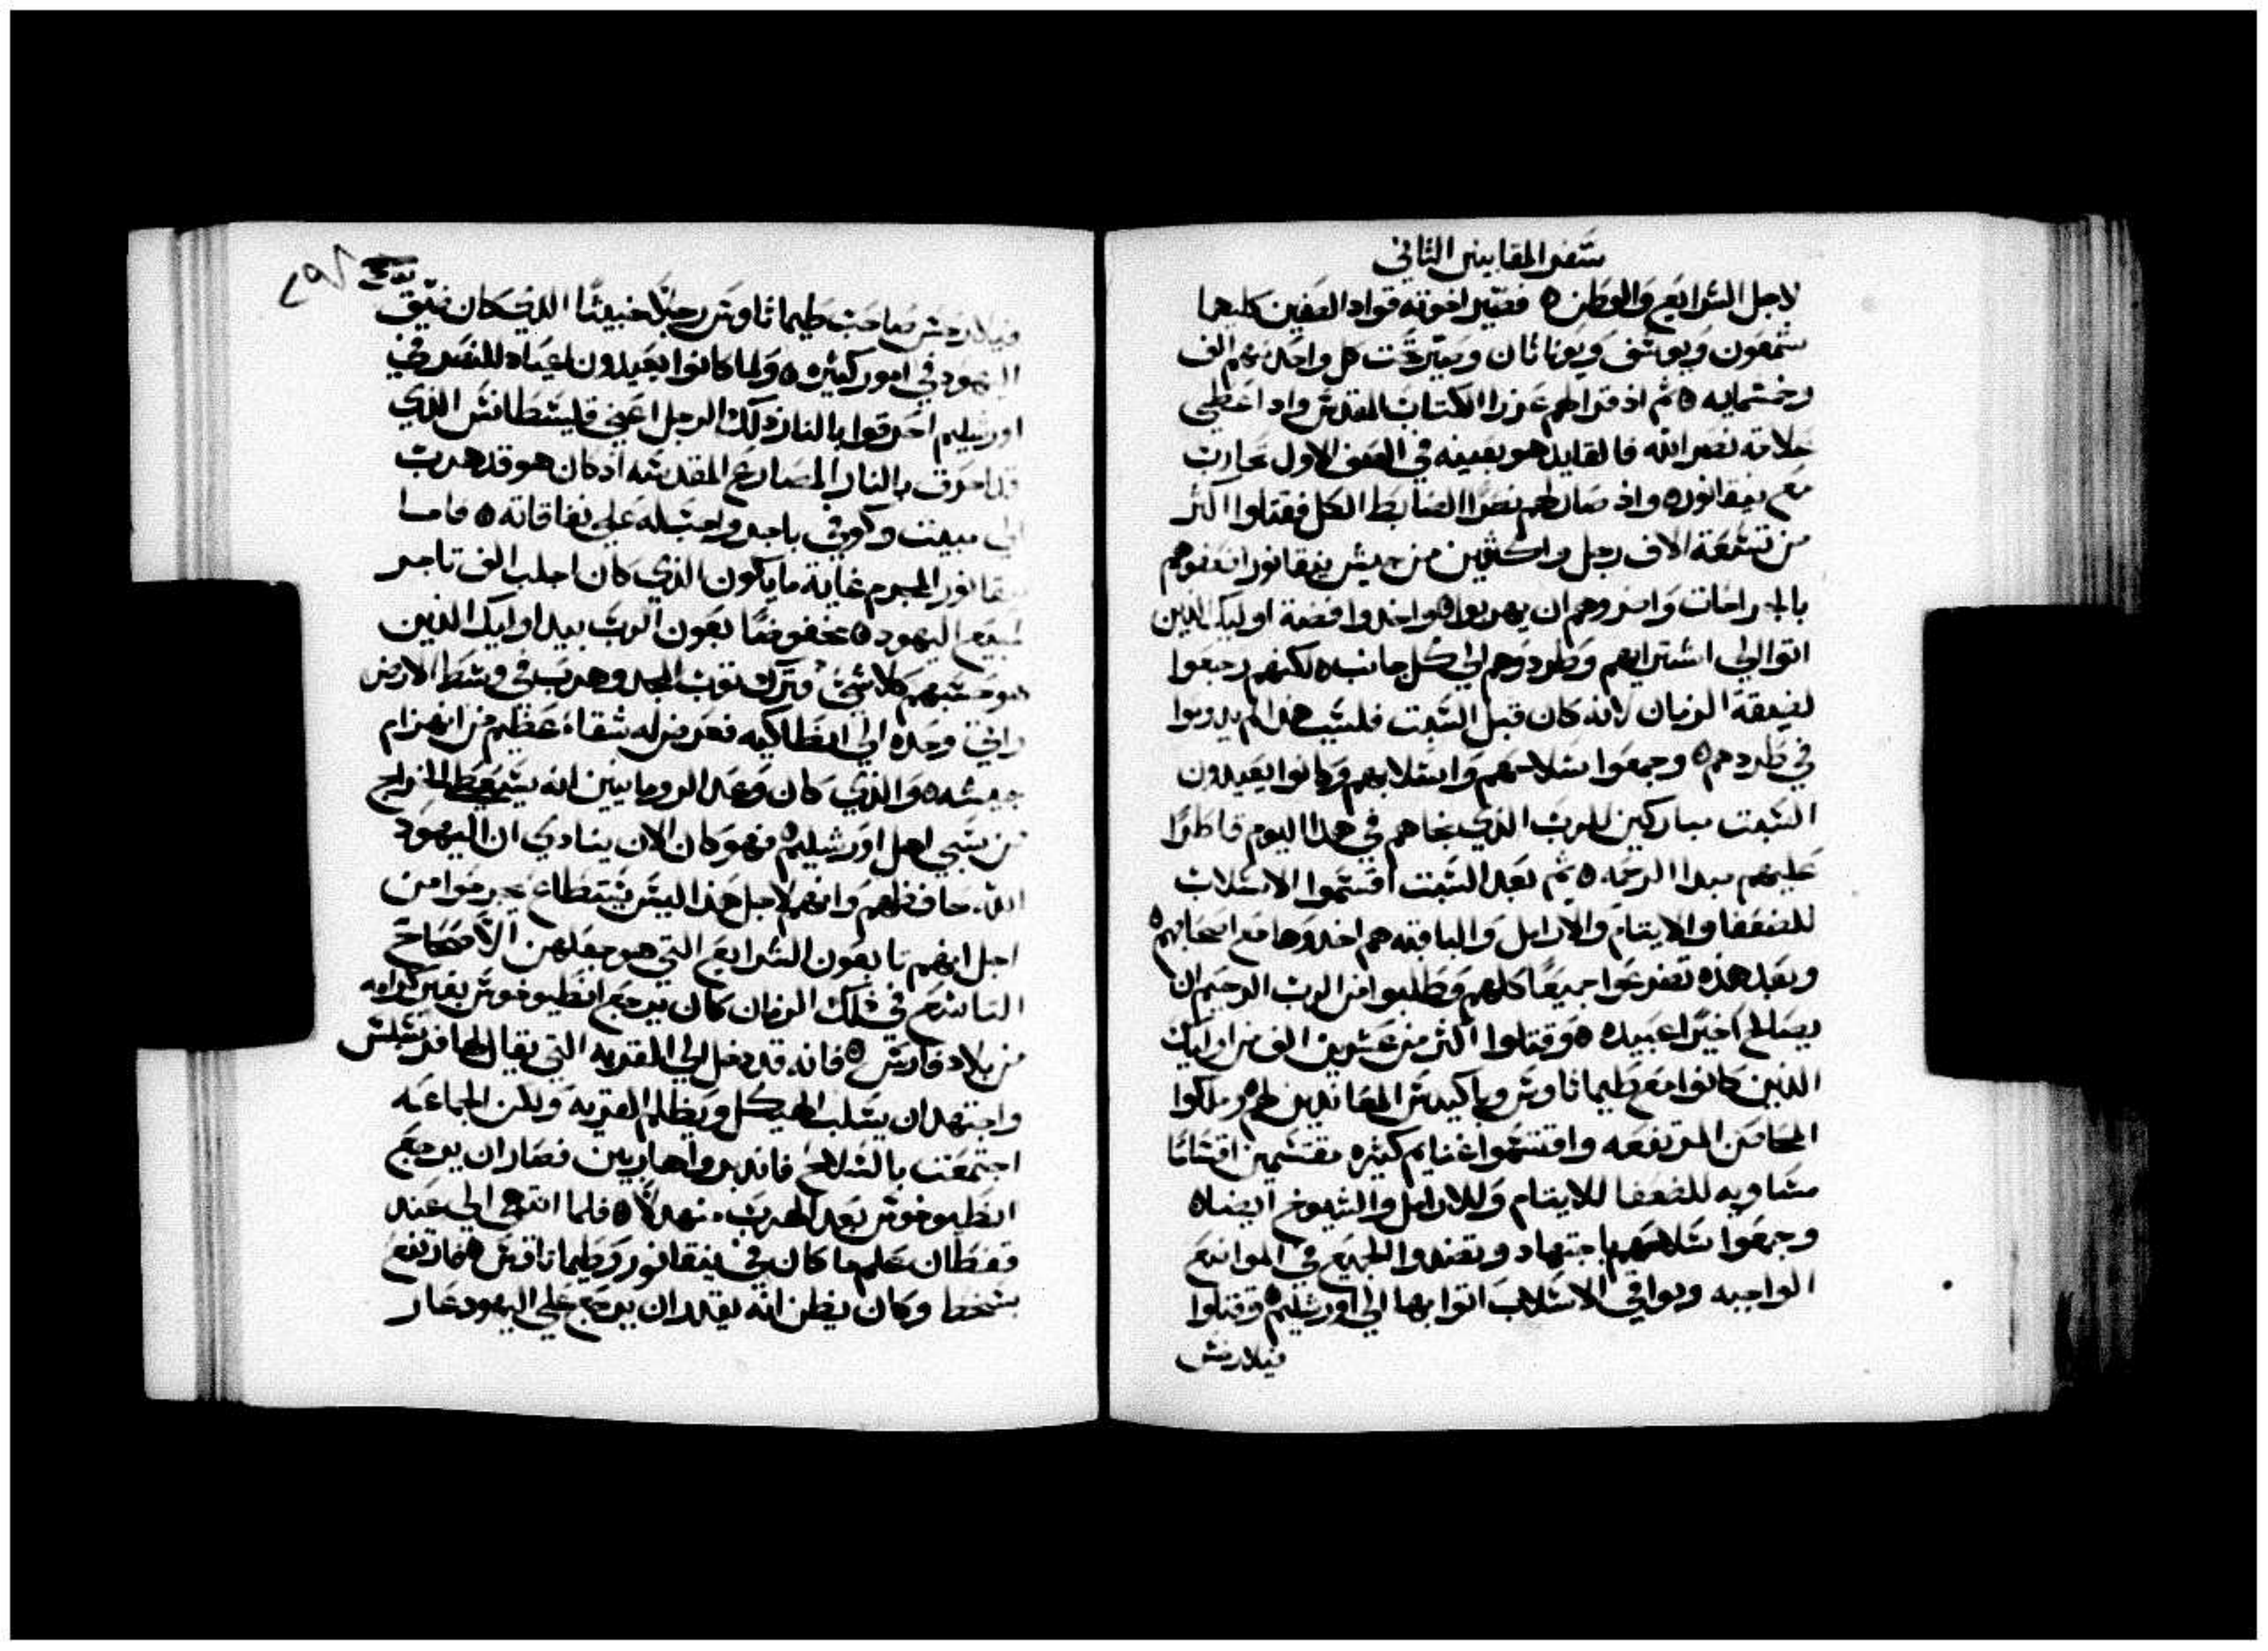 سفر المقابيين الثاني
لاجل الشرايع والوطن ٥ فصير اخوته قواد الصفين كليهما
شمعون ويوسف ويوناثان وصير تحت كل واحد منهم الف
وخمسمايه ٥ ثم اذ قرا لهم عزرا الكتاب المقدس واد اعطي
علامه نصر الله فالقايد هو بعينه في الصف الاول تحارب
مع نيقانور ٥ واذ صار لهم نصرا الضابط الكل فقتلوا اكثر
من تسعة الاف رجل واكثرين من جيش نيقانور اضعفوهم
بالجراحات واضروهم ان يهربوا ٥ واخدوا فضة اوليك الذين
اتوا الي اشترايهم وطردوهم الي كل جانب ٥ لكنهم رجعوا
لضيقة الزمان لانه كان قبل السبت فلسبب هدا لم يدوموا
في طردهم ٥ وجمعوا سلاحهم واسلابهم وكانوا يعيدون
السبت مباركين للرب الذي نجاهم في هدا اليوم قاطرا
عليهم مبدا الرحمه ٥ ثم بعد السبت اقسموا الاسلاب
للضعفا والايتام والارامل والباقيه هم اخدوها مع اصحابهم ٥
وبعد هذه تضرعوا جميعا كلهم وطلبوا من الرب الرحيم ان
يصالح اخيرا عبيده ٥ وقتلوا اكثر من عشرين الف من اوليك
الذين كانوا مع طيماثاوس وباكيدس المعاندين لهم وملكوا
المحاصن المرتفعه واقتسموا غنايم كثيره مقتسمين اقساما
مساويه للضعفا للايتام وللارامل والشيوخ ايضا ٥
وجمعوا سلاحهم باجتهاد ونضدوا الجميع في المواضع
الواجبه وبواقي الاسلاب اتوا بها الي اورشليم ٥ وقتلوا
فيلارخس
فيلارخس صاحب طيماثاوس رجلا خبيثا الذي كان ضيق
اليهود في امور كثيره ٥ ولما كانوا يعيدون اعياد النصر في
اورشليم احرقوا بالنار ذلك الرجل اعني قليسطانس الذي
قد احرق بالنار المصارع المقدسه اذ كان هو قد هرب
الي مبيت وكوفي باجر واجب له علي نفاقاته ٥ فاما
نيقانور المجرم غاية ما يكون الذي كان اجلب الف تاجر
لمبيع اليهود ٥ مخفوضا بعون الرب بيد اوليك الذين
هو حسبهم كلا شي وترك ثوب المجد وهرب في وسط الارض
واتي وحده الي انطاكيه فعرض له شقاء عظيم من انهزام
جيشه ٥ والذي كان وعد الرومانيين انه يستعطي الخراج
من سبي اهل اورشليم ٥ فهو كان الان ينادي ان اليهود
الله حافظهم وانهم لاجل هذا ليس يستطاع يجرحوا من
اجل انهم تابعون الشرايع التي هو جعلهن الاصحاح
التاسع في تلك الزمان كان يرجع انطيوخوس بغير كرامه
من بلاد فارس ٥ فانه قد دخل الي القريه التي يقال لها فرسبلس
واجتهد ان يسلب الهيكل ويظلم القريه ولكن الجماعه
اجتمعت بالسلاح فاندبروا هاربين فصار ان يرجع
انطيوخوس بعد الهرب منهدلا ٥ فلما انتهي الي عند
قفطان علم ما كان في نيقانور وطيماثاوس فارتفع
بسخط وكان يظن انه يقدر ان يرجع علي اليهود عار